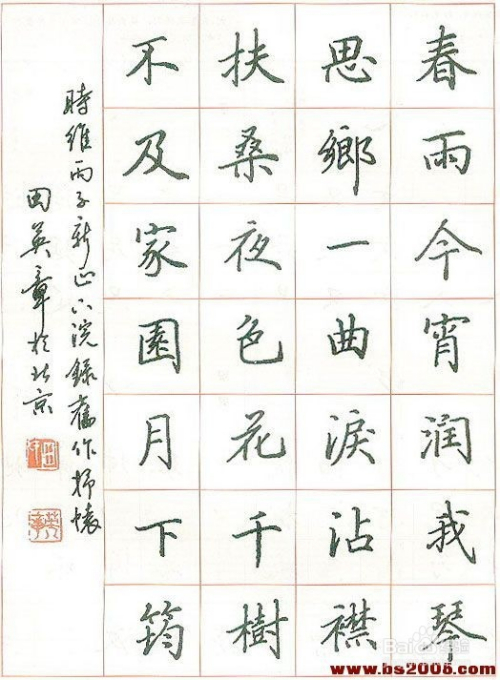 春雨今宵润我琴
思鄉一曲淚沾襟
扶桑夜色花千樹
不及家園月下筠
時維丙子新正下浣錄舊作抒懷
田英章於北京
Baidu 经验
www.bs2005.com